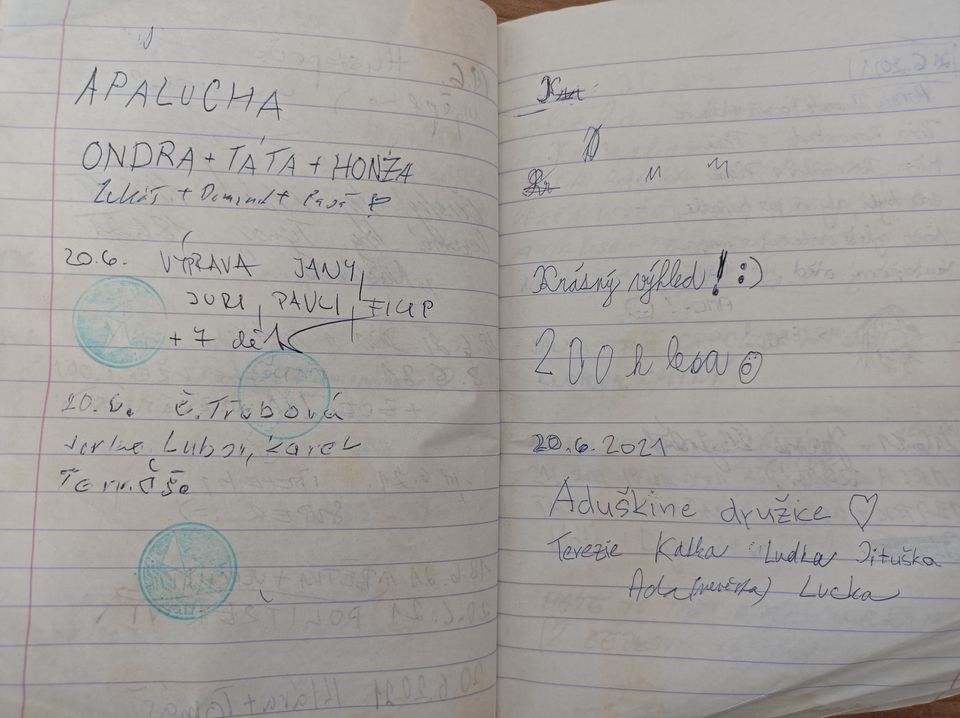 APALUCHA
ONDRA + TÁTA + HONZA
Lukáš + Dominik +
20.6. VÝPRAVA JANY,
JURI, PAVLI, FILIP
+ 7 dětí
20.6. Č. Třebová
Lubor, Karel
Krásný výhled! :)
200 h lesa
20.6.2021
Aduškine družice ♡
Terezie Katka Ludka Jituška
Ada (nevěsta) Lucka